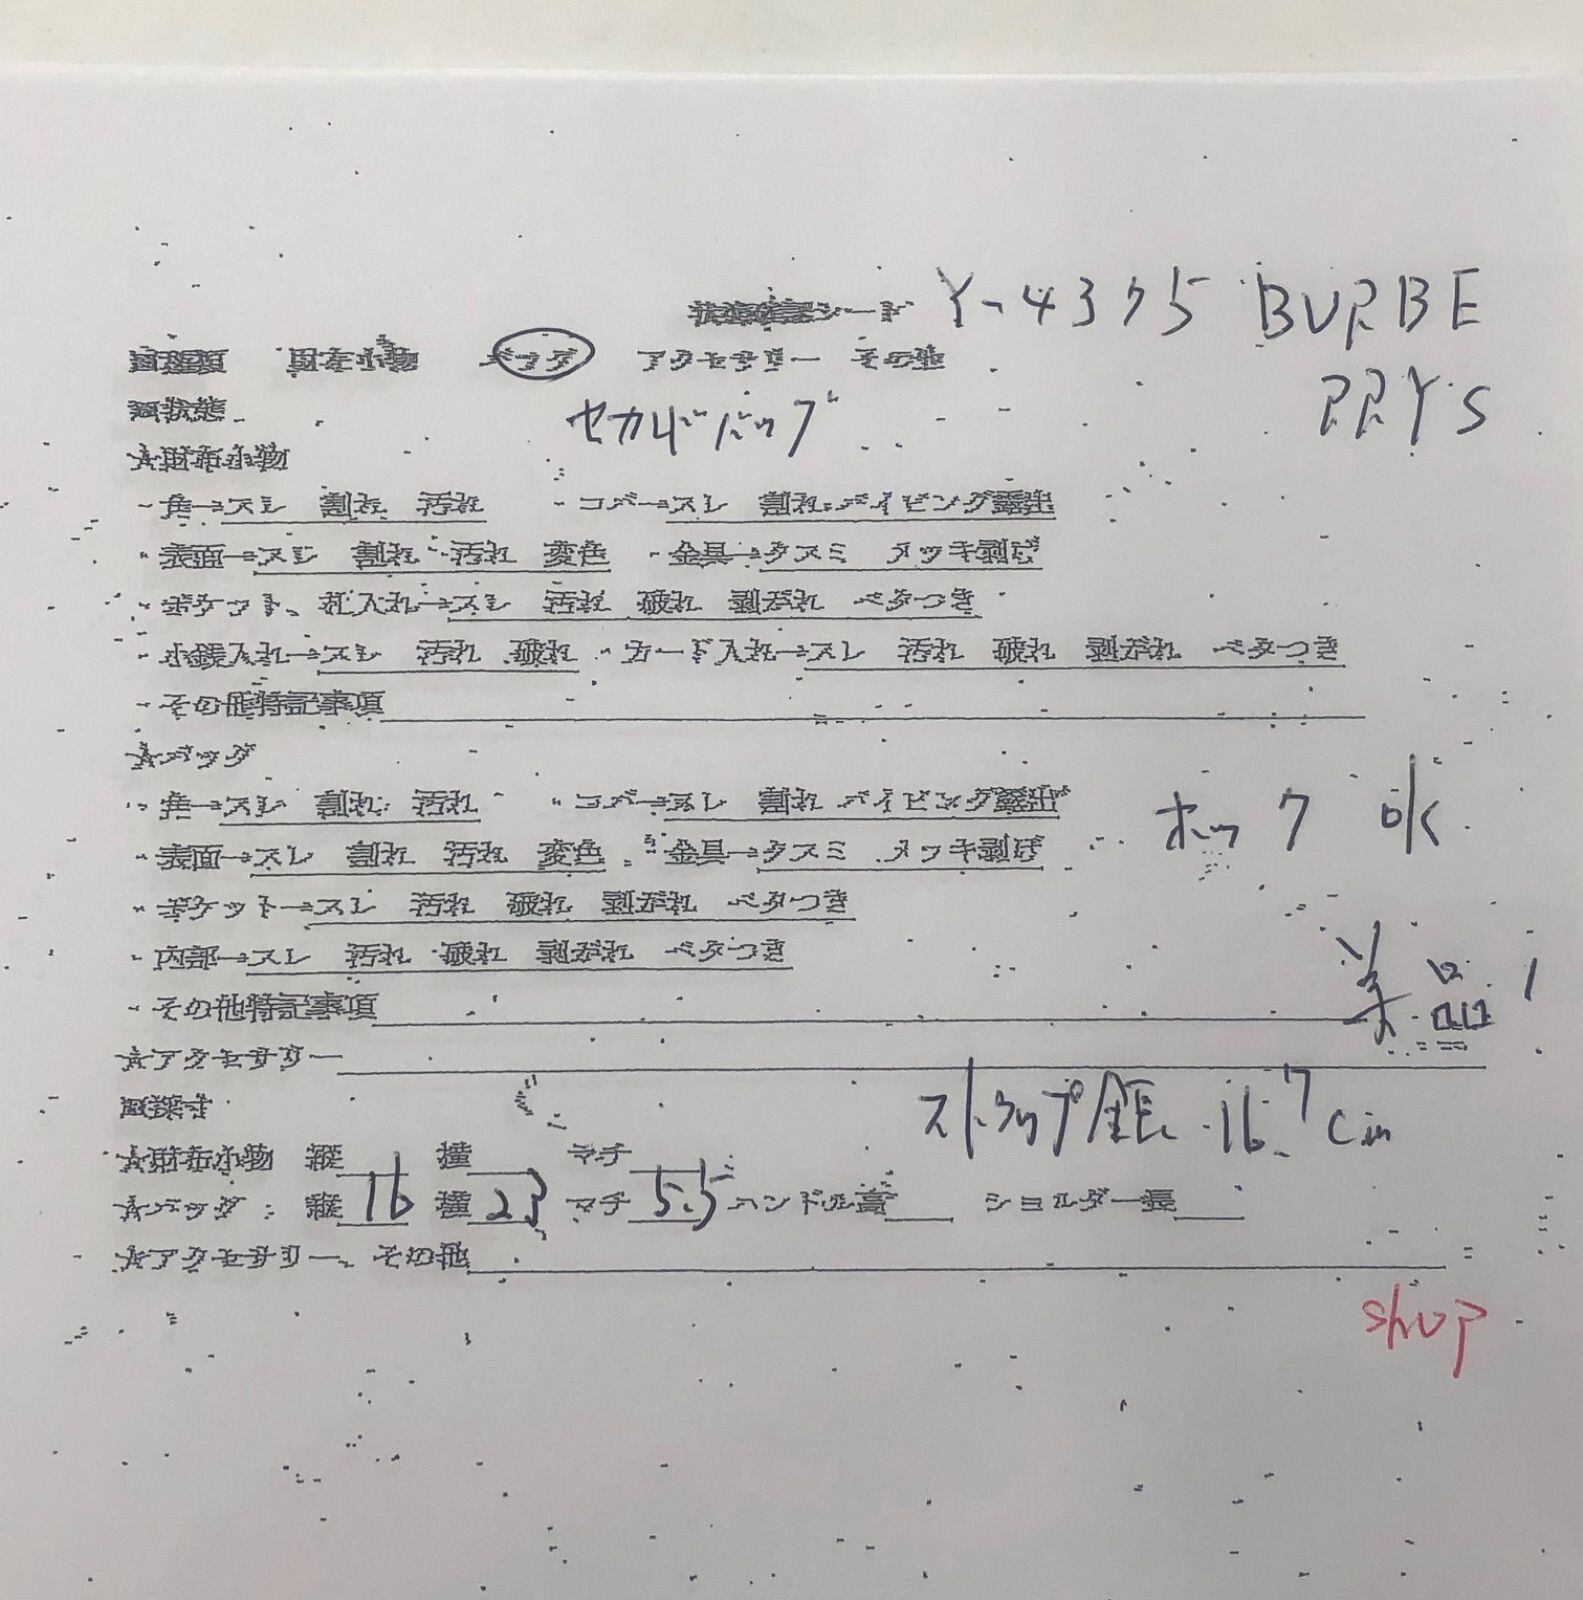 状態確認シート Y-4375 BURBE
RRY'S
財布小物 バッグ アクセサリー その他
■状態
セカンドバッグ
☆財布小物
・角→スレ 割れ 汚れ ・コバ→スレ 割れ パイピング露出
・表面→スレ 割れ 汚れ 変色 ・金具→クスミ メッキ剥げ
・ポケット、札入れ→スレ 汚れ 破れ 剥がれ ベタつき
・小銭入れ→スレ 汚れ 破れ ・カード入れ→スレ 汚れ 破れ 剥がれ ベタつき
・その他特記事項
☆バッグ
・角→スレ 割れ 汚れ ・コバ→スレ 割れ パイピング露出
ホック ok
・表面→スレ 割れ 汚れ 変色 ・金具→クスミ メッキ剥げ
・ポケット→スレ 汚れ 破れ 剥がれ ベタつき
・内部→スレ 汚れ 破れ 剥がれ ベタつき
美品!
・その他特記事項
☆アクセサリー
■採寸
ストラップ全長 16.7cm
☆財布小物 縦 横 マチ
☆バッグ : 縦16 横23 マチ5.5 ハンドル高 ショルダー長
☆アクセサリー、その他
shop